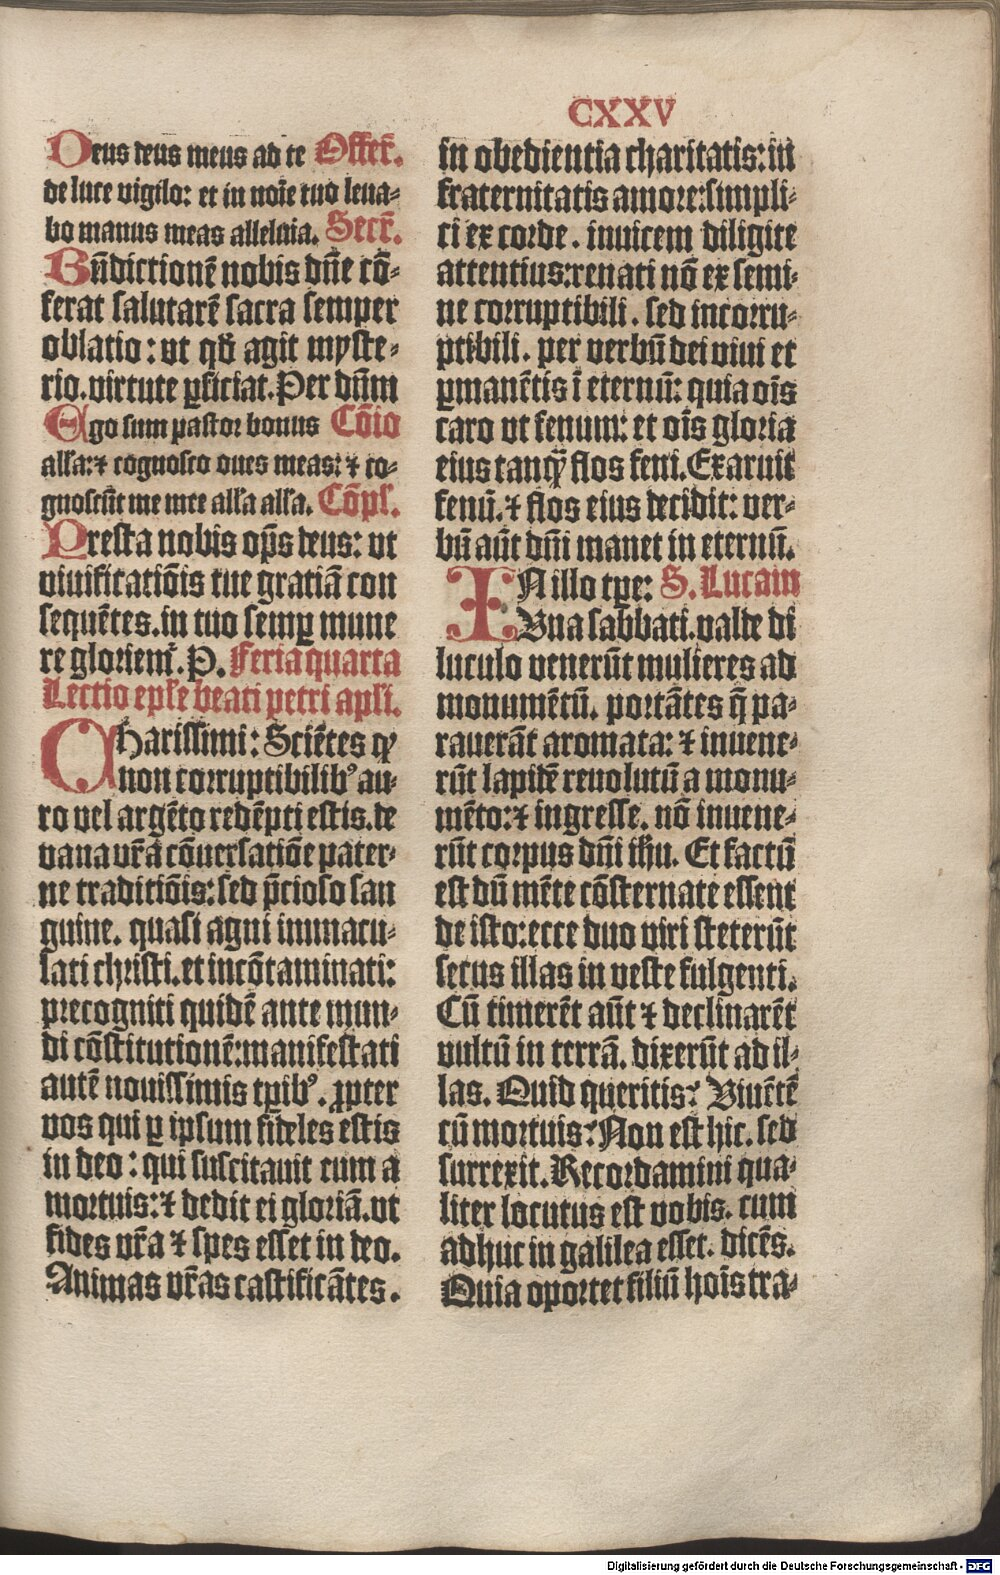 CXXV
Deus deus meus ad te Offert̄.
de luce vigilo: et in noīe tuo leua-
bo manus meas alleluia. Secr̄.
Bn̄dictionē nobis dn̄e cō-
ferat salutarē sacra semper
oblatio: vt qd̄ agit myste-
rio. virtute ꝑficiat. Per dn̄m
Ego sum pastor bonus Cōio
alľa: ⁊ cognosco oues meas: ⁊ co-
gnoscūt me mee alľa alľa. Cōpľ.
Presta nobis op̄s deus: vt
viuificatiōis tue gratiā con
sequētes. in tuo semꝑ mune
re gloriemꝰ. P. Feria quarta
Lectio epľe beati petri apľi.
CHarissimi: Sciētes ꝙ
non corruptibilibꝰ au-
ro vel argēto redēpti estis. de
vana vr̄a cōuersatiōe pater-
ne traditiōis: sed p̄cioso san
guine. quasi agni immacu-
lati christi. et incōtaminati:
precogniti quidē ante mun-
di cōstitutionē: manifestati
autē nouissimis tꝑibꝰ. ꝓpter
vos qui ꝑ ipsum fideles estis
in deo: qui suscitauit eum a
mortuis: ⁊ dedit ei gloriā. vt
fides vr̄a ⁊ spes esset in deo.
Animas vr̄as castificātes.
in obedientia charitatis: in
fraternitatis amore: simpli-
ci ex corde. inuicem diligite
attentius: renati nō ex semi-
ne corruptibili. sed incorru-
ptibili. per verbū dei viui et
ꝑmanētis ī eternū: quia oīs
caro vt fenum: et oīs gloria
eius tanqꝫ flos feni. Exaruit
fenū. ⁊ flos eius decidit: ver-
bū aūt dn̄i manet in eternū.
IN illo tꝑe: S. Lucam
Vna sabbati. valde di
luculo venerūt mulieres ad
monumētū. portātes q̄ pa-
rauerāt aromata: ⁊ inuene-
rūt lapidē reuolutū a monu-
mēto: ⁊ ingresse. nō inuene-
rūt corpus dn̄i ihū. Et factū
est dū mēte cōsternate essent
de isto: ecce duo viri steterūt
secus illas in veste fulgenti.
Cū timerēt aūt ⁊ declinarēt
vultū in terrā. dixerūt ad il-
las. Quid queritis? Viuētē
cū mortuis? Non est hic. sed
surrexit. Recordamini qua-
liter locutus est vobis. cum
adhuc in galilea esset. dicēs.
Quia oportet filiū hoīs tra-
Digitalisierung gefördert durch die Deutsche Forschungsgemeinschaft - DFG